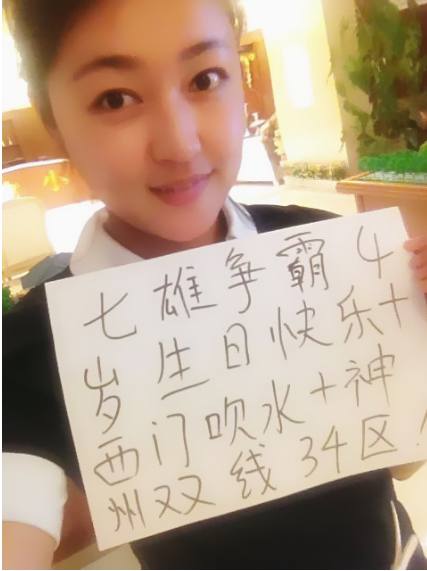 七雄争霸4
岁生日快乐+
西门吹水+神
州双线34区!